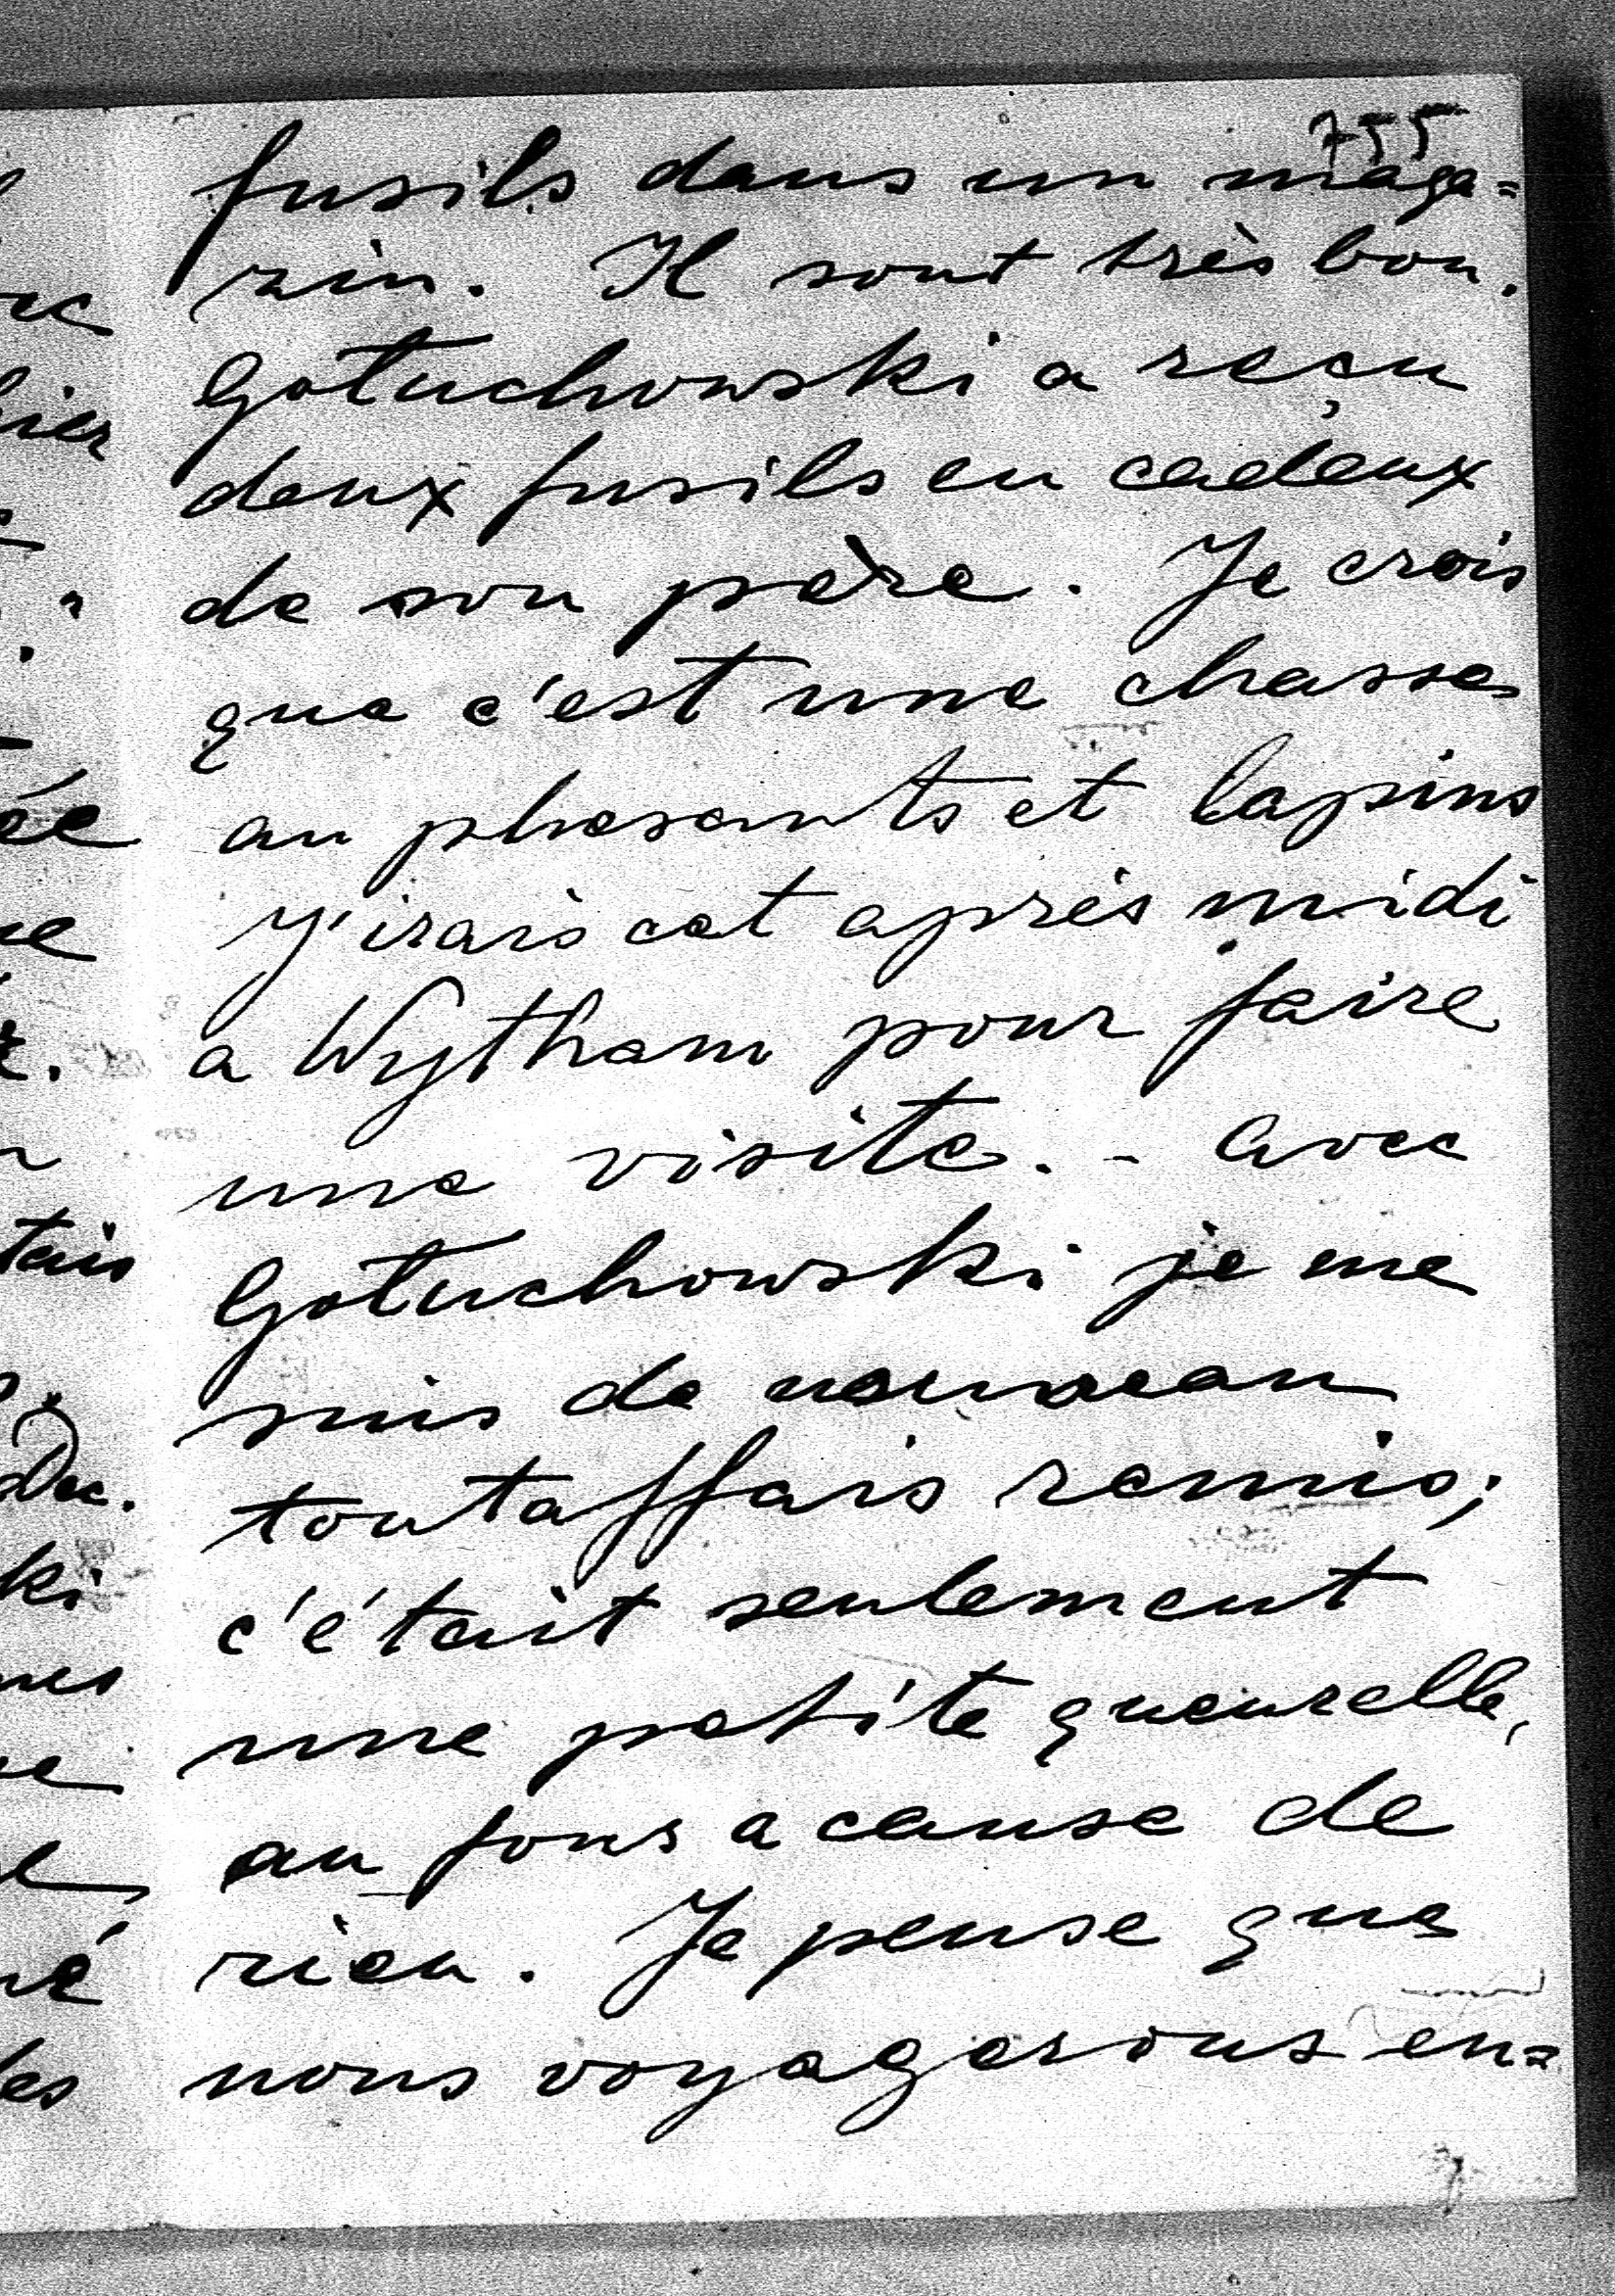 755
fusils dans un maga=
zin. Il sont très bon.
Gołuchowski a reçu
deux fusils en cadeux
de son père. Je crois
que c'est une chasse
au phesants et lapins
J'irais cet après midi
a Wytham pour faire
une visite. - Avec
Gołuchowski je me
suis de nouveau
toutaffais remis;
c'était seulement
une petite queurelle,
au fons a cause de
rien. Je pense que
nous voyagerons en=